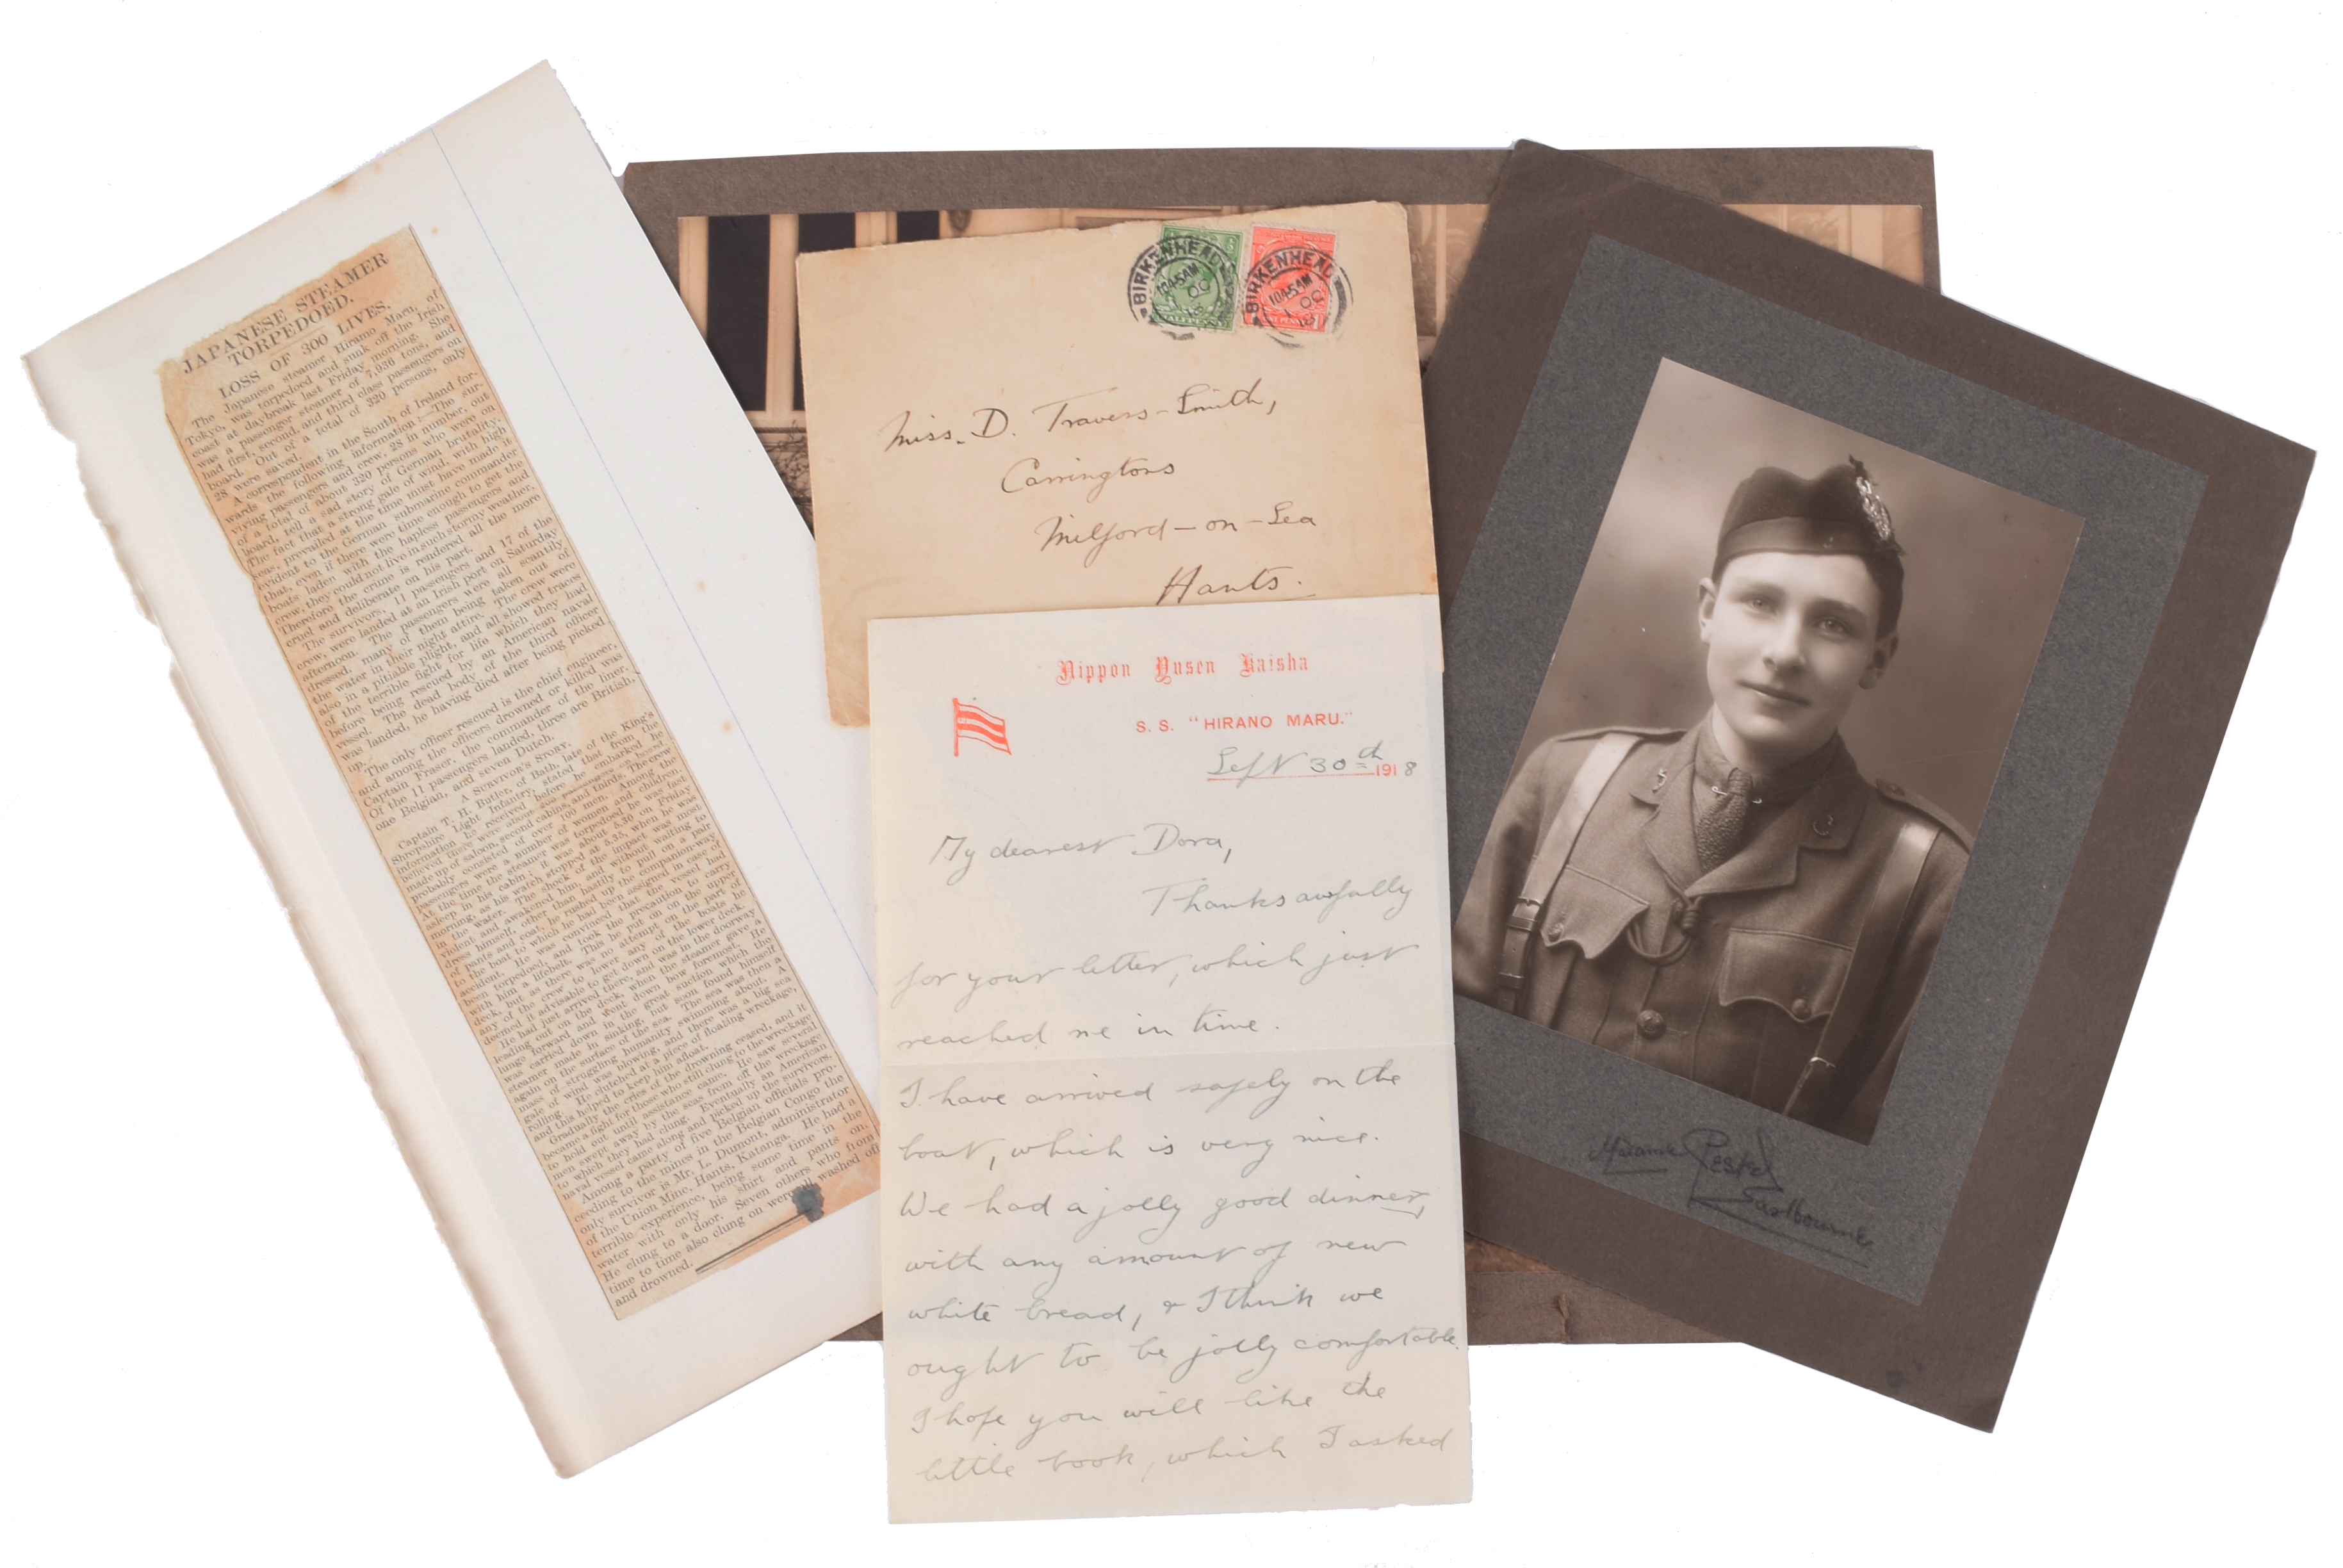 JAPANESE STEAMER
TORPEDOED.
LOSS OF 300 LIVES.
The Japanese steamer Hirano Maru, of
Tokyo, was torpedoed and sunk off the Irish
coast at daybreak last Friday morning. She
was a passenger steamer of 7,936 tons, and
had first, second, and third class passengers on
board. Out of a total of 320 persons, only
28 were saved.
A correspondent in the South of Ireland for-
wards the following information:—The sur-
viving passengers and crew, 28 in number, out
of a total of about 320 persons who were on
board, tell a sad story of German brutality.
The fact that a strong gale of wind, with high
seas, prevailed at the time must have made it
evident to the German submarine commander
that, even if there were time enough to get the
boats laden with the hapless passengers and
crew, they could not live in such stormy weather.
Therefore the crime is rendered all the more
cruel and deliberate on his part.
The survivors, 11 passengers and 17 of the
crew, were landed at an Irish port on Saturday
afternoon. The passengers were all scantily
dressed, many of them being taken out of
the water in their night attire. The crew were
also in a pitiable plight, and all showed traces
of the terrible fight for life which they had
before being rescued by an American naval
vessel. The dead body of the third officer
was landed, he having died after being picked
up.
The only officer rescued is the chief engineer,
and among the officers drowned or killed was
Captain Fraser, the commander of the liner.
Of the 11 passengers landed, three are British,
one Belgian, and seven Dutch.
A SURVIVOR'S STORY.
Captain T. H. Butler, of Bath, late of the King's
Shropshire Light Infantry, stated that from the
information he received before he embarked he
believed there were about 200 passengers on board
made up of saloon, second cabins, and thirds. The crew
probably consisted of over 100 men. Among the
passengers were a number of women and children.
At the time the steamer was torpedoed he was fast
asleep in his cabin; it was about 5.30 on Friday
morning, as his watch stopped at 5.35, when he was
in the water. The shock of the impact was most
violent and awakened him, and without waiting to
dress himself, other than hastily to pull on a pair
of pants and coat, he rushed up the companion-way
to the boat to which he had been assigned in case of
accident. He was convinced that the vessel had
been torpedoed, and took the precaution to carry
with him a lifebelt. This he put on on the upper
deck, but as there was no attempt on the part of
any of the crew to lower any of the boats he
deemed it advisable to get down on the lower deck.
He had just arrived there, and was in the doorway
leading out on the deck, when the steamer gave a
lunge forward and went down bow foremost. He
was carried down in the great suction which the
steamer made in sinking, but soon found himself
again on the surface of the sea. The sea was then a
mass of struggling humanity swimming about. A
gale of wind was blowing, and there was a big sea
rolling. He clutched at a piece of floating wreckage,
and this helped to keep him afloat.
Gradually the cries of the drowning ceased, and it
became a fight for those who still clung to the wreckage
to hold out until assistance came. He saw several
men swept away by the seas from off the wreckage
to which they had clung. Eventually an American
naval vessel came along and picked up the survivors.
Among a party of five Belgian officials pro-
ceeding to the mines in the Belgian Congo the
only survivor is Mr. L. Dumont, administrator
of the Union Mine, Hants, Katanga. He had a
terrible experience, being some time in the
water with only his shirt and pants on.
He clung to a door. Seven others who from
time to time also clung on were all washed off
and drowned.
BIRKENHEAD
10.45AM
1 OC
18
BIRKENHEAD
10.45AM
1 OC
18
Miss. D. Travers-Smith,
Carringtons
Milford-on-Sea
Hants.
Nippon Yusen Kaisha
S. S. "HIRANO MARU."
Sept 30th 1918
My dearest Dora,
Thanks awfully
for your letter, which just
reached me in time.
I have arrived safely on the
boat, which is very nice.
We had a jolly good dinner,
with any amount of new
white bread, & I think we
ought to be jolly comfortable.
I hope you will like the
little book, which I asked
Madame Peskel
Eastbourne